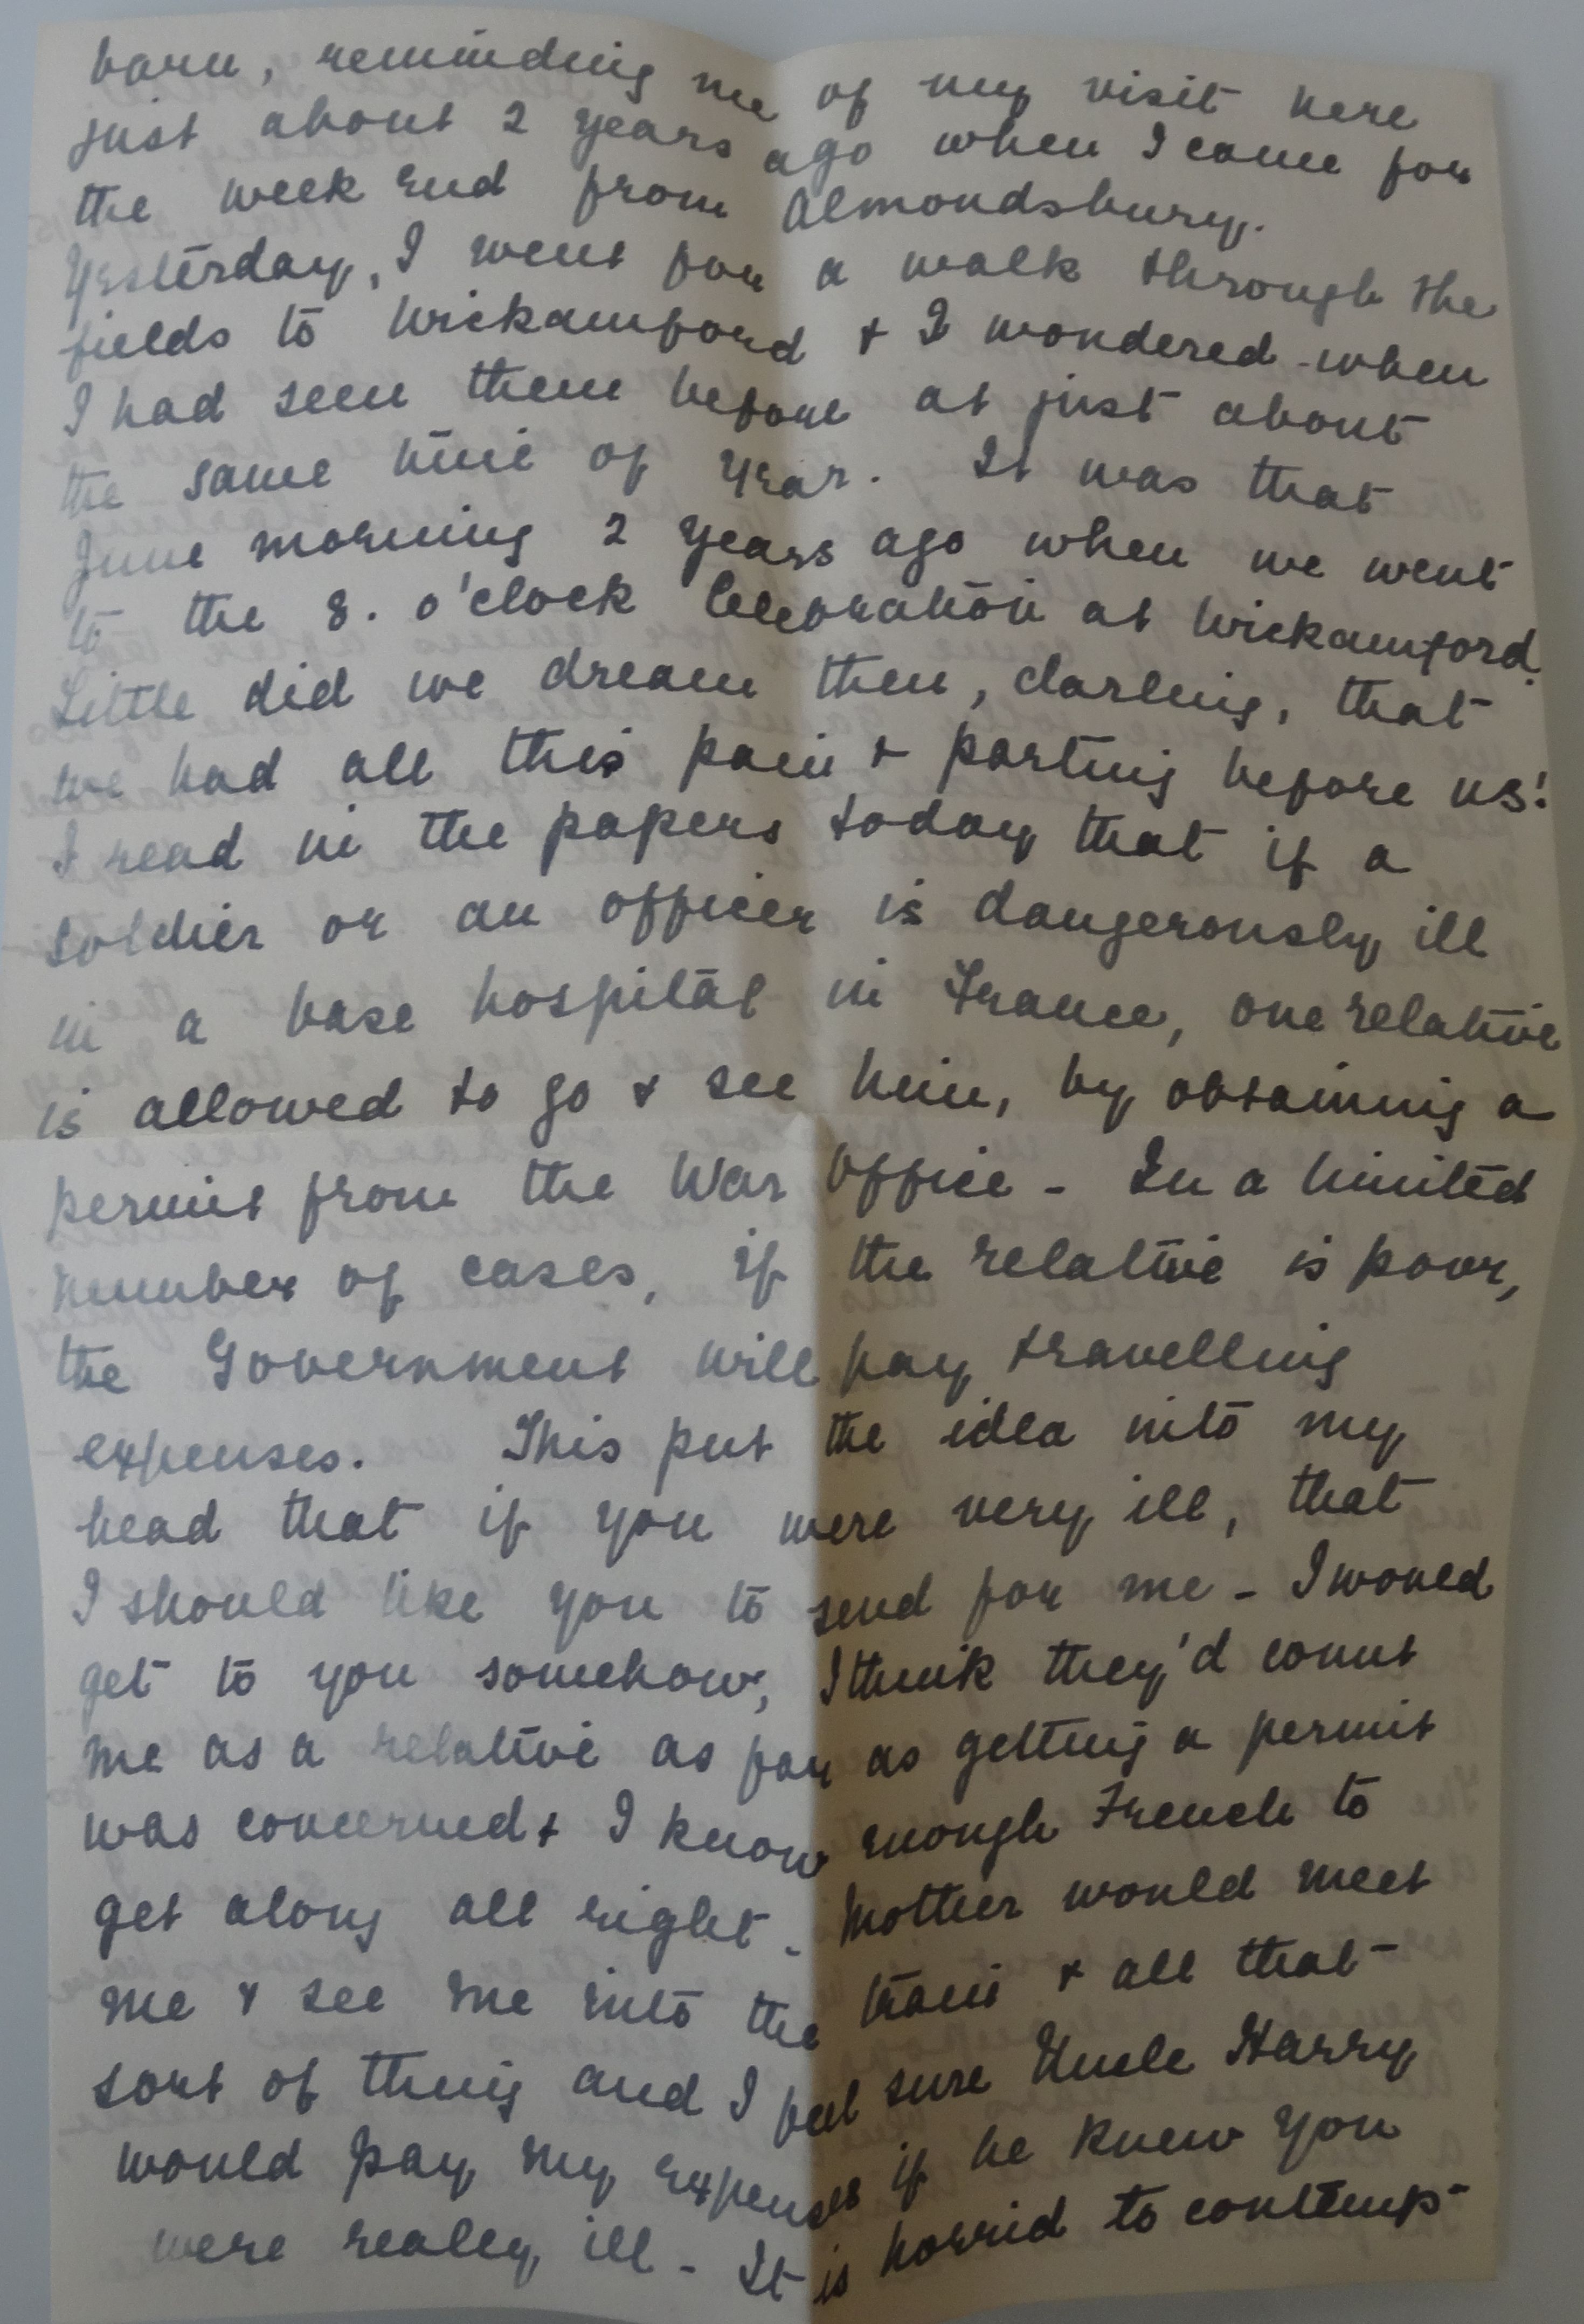 barn, reminding me of my visit here
just about 2 years ago when I came for
the week end from Almondsbury.
Yesterday, I went for a walk through the
fields to Wickamford + I wondered when
I had seen them before at just about
the same time of year. It was that
June morning 2 years ago when we went
to the 8. o'clock Celebration at Wickamford.
Little did we dream then, darling, that
we had all this pain + parting before us!
I read in the papers today that if a
soldier or an officer is dangerously ill
in a base hospital in France, one relative
is allowed to go + see him, by obtaining a
permit from the War Office - In a limited
number of cases, if the relative is poor,
the Government will pay travelling
expenses. This put the idea into my
head that if you were very ill, that
I should like you to send for me - I would
get to you somehow, I think they'd count
me as a relative as far as getting a permit
was concerned + I know enough French to
get along all right - Mother would meet
me + see me into the train + all that
sort of thing and I feel sure Uncle Harry
would pay my expenses if he knew you
were really ill - It is horrid to contemp-